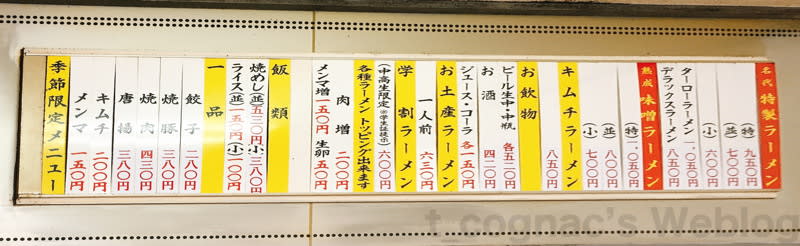 名代 特製ラーメン
(特) 九五〇円
(並) 七〇〇円
(小) 六〇〇円
ターローラーメン 一、〇五〇円
デラックスラーメン 八五〇円
熟成 味噌ラーメン
(特) 一、〇五〇円
(並) 八〇〇円
(小) 七〇〇円
キムチラーメン
八五〇円
お飲物
ビール生中・中瓶 各五二〇円
お酒 四二〇円
ジュース・コーラ 各一五〇円
お土産ラーメン
一人前 六三〇円
学割ラーメン
(中高生限定※学生証提示) 六〇〇円
各種ラーメントッピング出来ます
肉増 二〇〇円
メンマ増 一五〇円 生卵 五〇円
飯類
焼めし(並)五三〇円(小)三八〇円
ライス(並)一五〇円(小)一〇〇円
一品
餃子 二八〇円
焼豚 三八〇円
焼肉 四三〇円
唐揚 三八〇円
キムチ 二〇〇円
メンマ 一五〇円
季節限定メニュー
t_cognac's Weblog